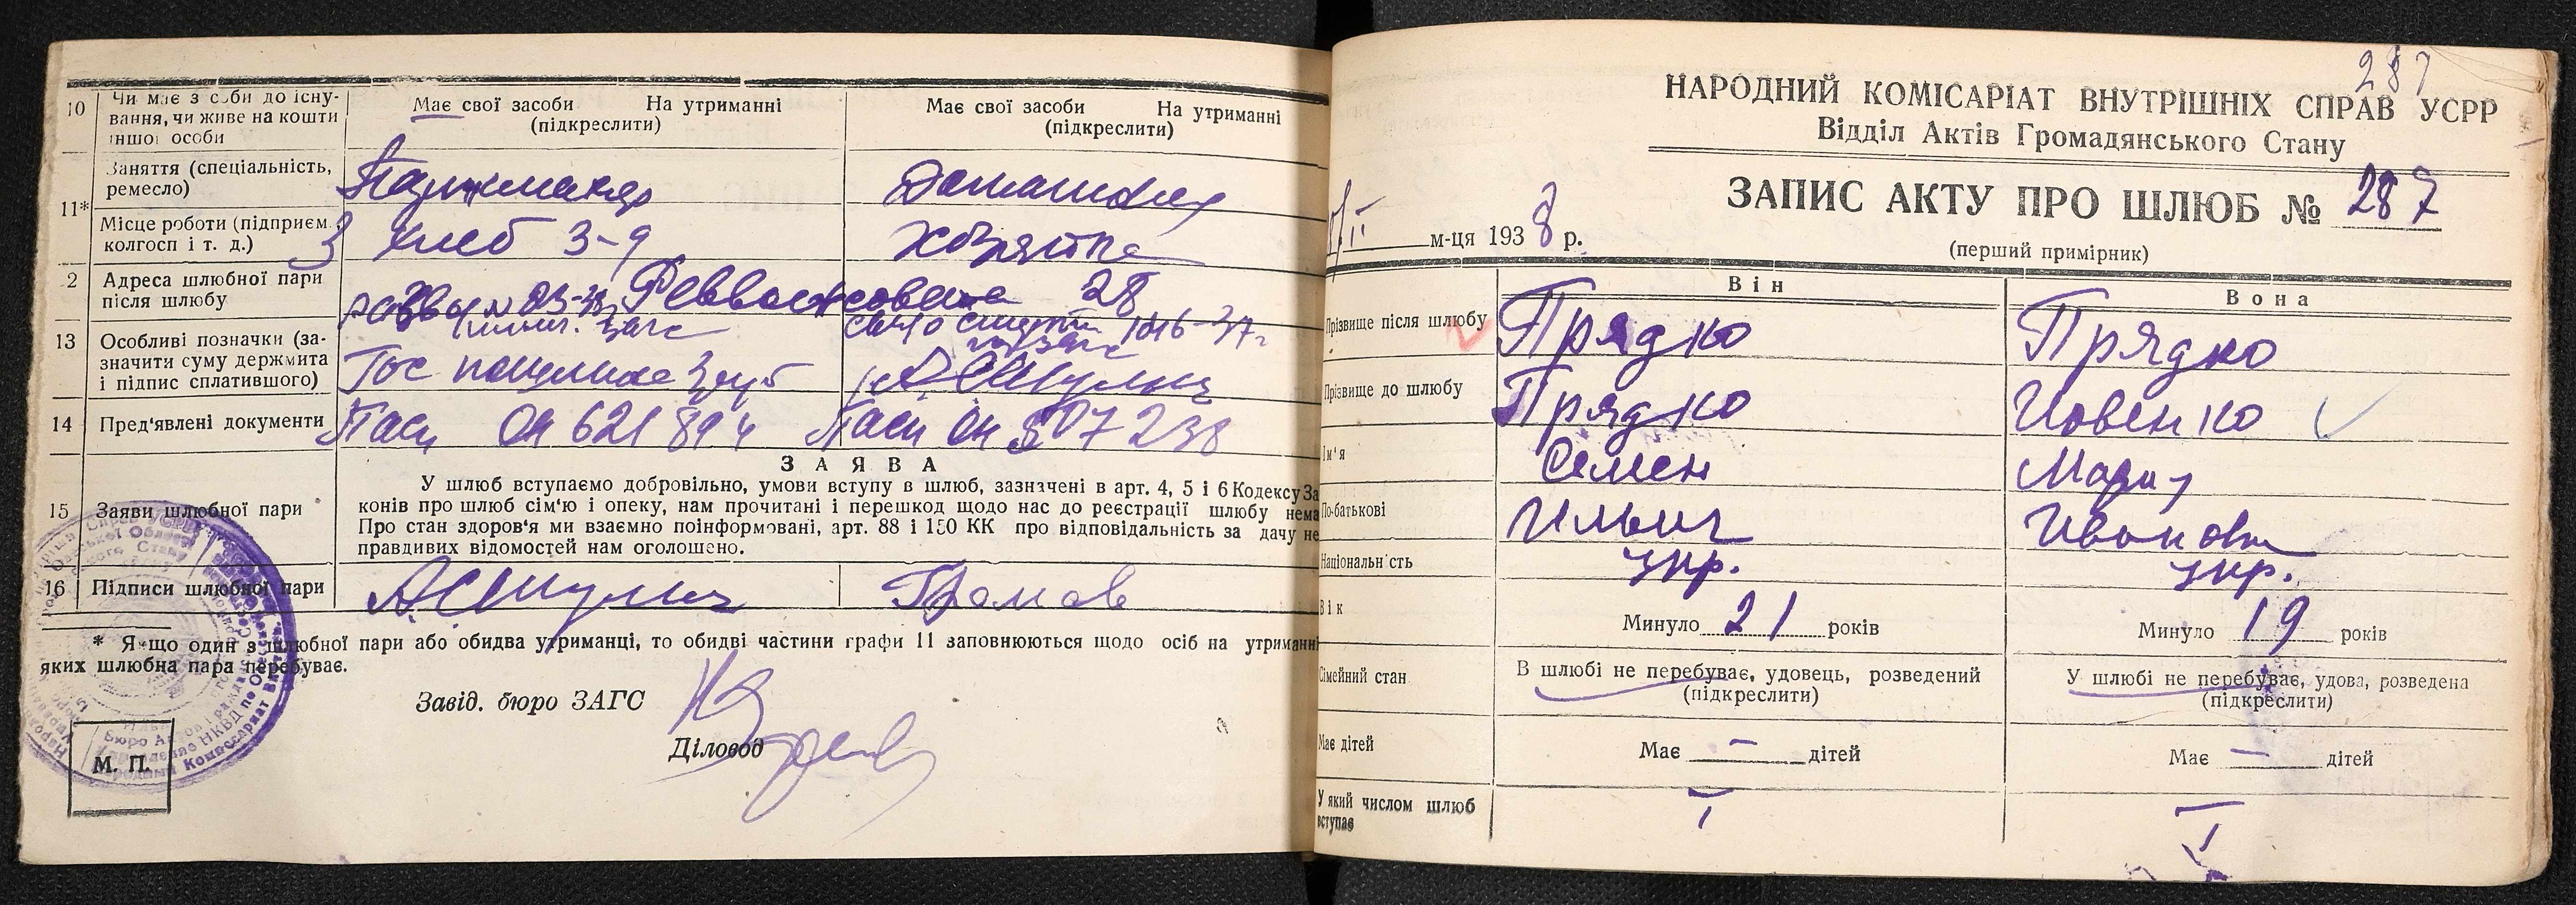 10 Чи має з соби до існу-
вання, чи живе на кошти
іншої особи
Має свої засоби На утриманні
(підкреслити)
Має свої засоби На утриманні
(підкреслити)
11*
Заняття (спеціальність,
ремесло)
Домашняя
Місце роботи (підприєм.,
колгосп і т. д.)
Хлеб 3-9
хозяйка
2 Адреса шлюбної пари
після шлюбу
28
13 Особливі позначки (за-
значити суму держмита
і підпис сплатившого)
Гос пошлина 3 руб
14 Пред'явлені документи
Пасп ОИ 621894
Пасп ОИ 507238
15 Заяви шлюбної пари
ЗАЯВА
У шлюб вступаємо добровільно, умови вступу в шлюб, зазначені в арт. 4, 5 і 6 Кодексу За
конів про шлюб сім'ю і опеку, нам прочитані і перешкод щодо нас до реєстрації шлюбу нема
Про стан здоров'я ми взаємно поінформовані, арт. 88 і 150 КК про відповідальність за дачу не
правдивих відомостей нам оголошено.
16 Підписи шлюбної пари
* Якщо один з шлюбної пари або обидва утриманці, то обидві частини графи 11 заповнюються щодо осіб на утриманні
яких шлюбна пара перебуває.
Завід. бюро ЗАГС
Діловод
М. П.
287
НАРОДНИЙ КОМІСАРІАТ ВНУТРІШНІХ СПРАВ УСРР
Відділ Актів Громадянського Стану
ЗАПИС АКТУ ПРО ШЛЮБ № 287
м-ця 1938 р.
(перший примірник)
Він Вона
Прізвище після шлюбу Прядко Прядко
Прізвище до шлюбу Прядко Иовенко
Ім'я Семен Мария
По-батькові Ильич Ивановна
Національність укр. укр.
Вік Минуло 21 років Минуло 19 років
Сімейний стан В шлюбі не перебуває, удовець, розведений
(підкреслити)
У шлюбі не перебуває, удова, розведена
(підкреслити)
Має дітей Має — дітей Має — дітей
У який числом шлюб
вступає I I